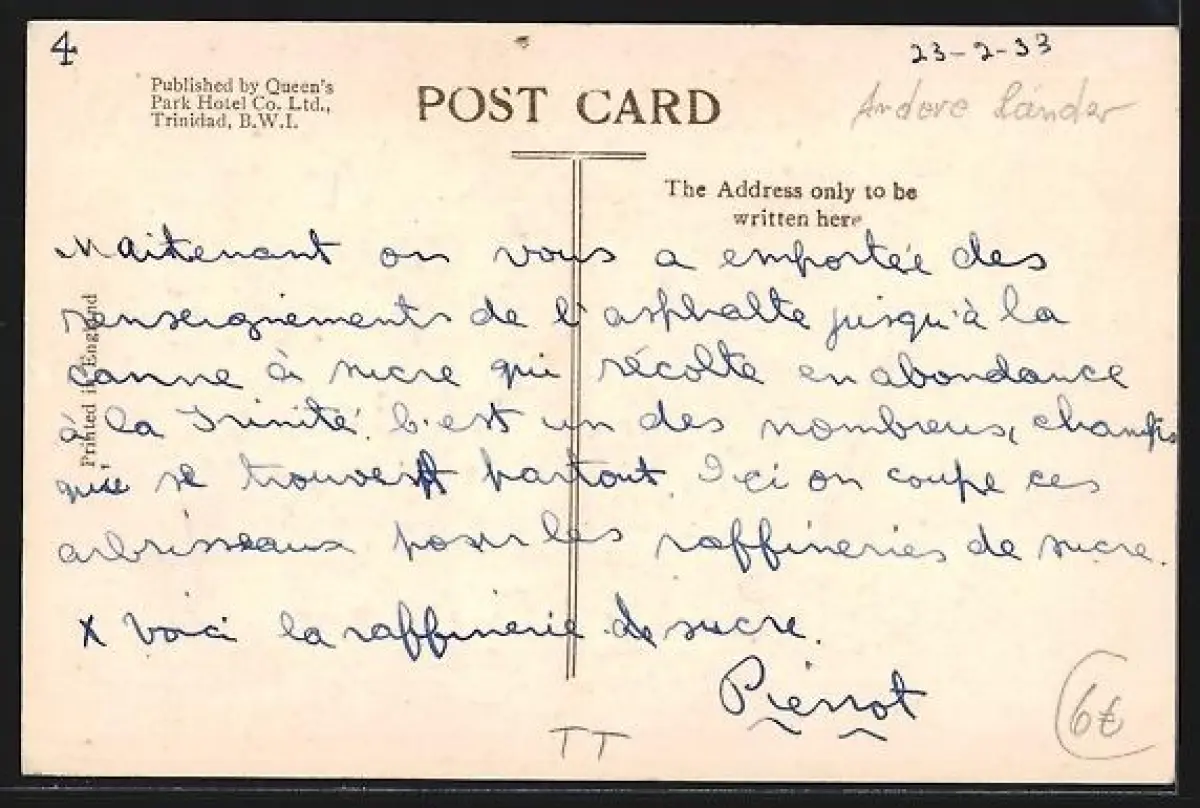 4
23-2-33
Published by Queen's
Park Hotel Co. Ltd.,
Trinidad, B.W.I.
POST CARD
Andere Länder
The Address only to be
written here
Printed in England
Maitenant on vous a emportée des
renseignements de l'asphalte jusqu'à la
canne à sucre qui récolte en abondance
à la Trinité. C'est un des nombreux champs
qui se trouvent partout. Ici on coupe ces
arbrisseaux pour les raffineries de sucre.
X Voici la raffinerie de sucre.
Pierrot
TT
6€